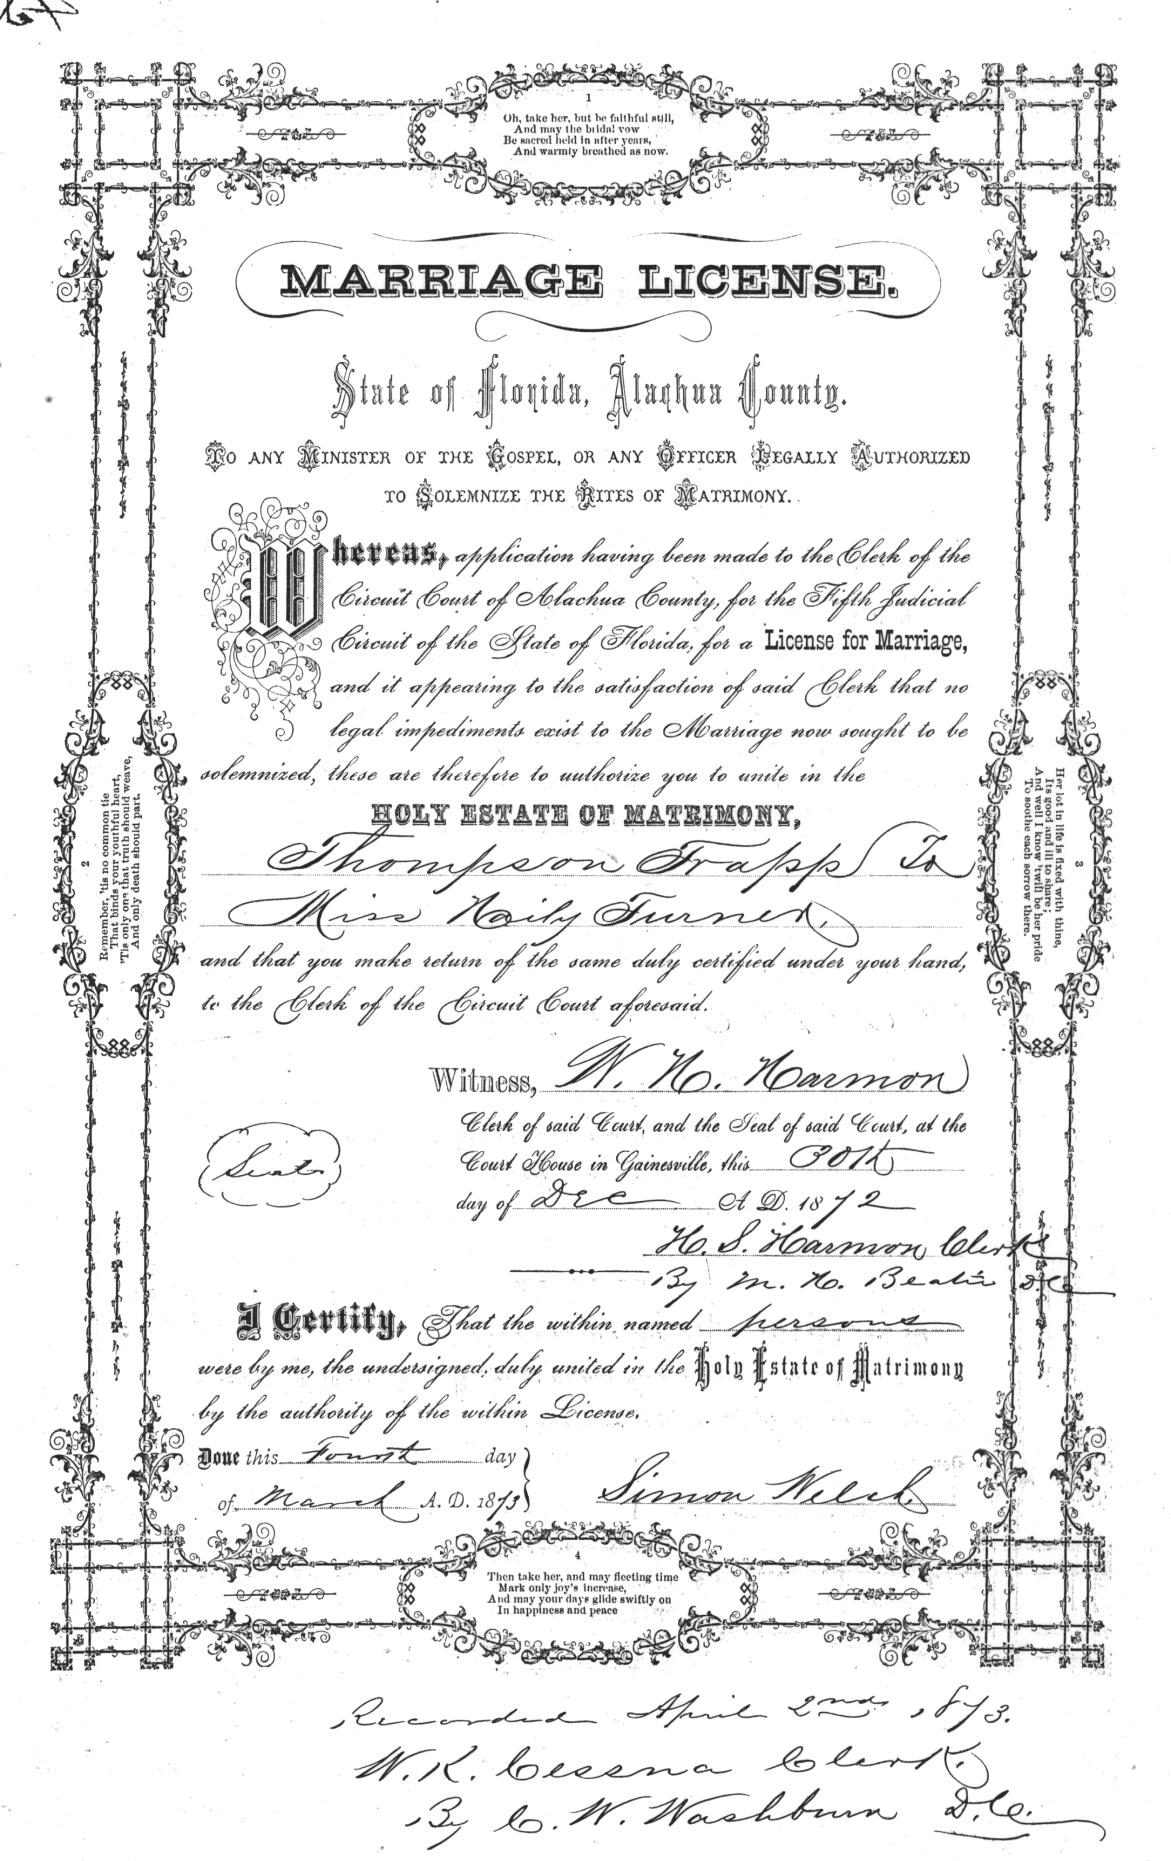 1
Oh, take her, but be faithful still,
And may the bridal vow
Be sacred held in after years,
And warmly breathed as now.
MARRIAGE LICENSE.
State of Florida, Alachua County.
TO ANY MINISTER OF THE GOSPEL, OR ANY OFFICER LEGALLY AUTHORIZED
TO SOLEMNIZE THE RITES OF MATRIMONY.
Whereas, application having been made to the Clerk of the
Circuit Court of Alachua County, for the Fifth Judicial
Circuit of the State of Florida, for a License for Marriage,
and it appearing to the satisfaction of said Clerk that no
legal impediments exist to the Marriage now sought to be
solemnized, these are therefore to authorize you to unite in the
HOLY ESTATE OF MATRIMONY,
Thompson Trapp To
Miss Haily Turner,
and that you make return of the same duly certified under your hand,
to the Clerk of the Circuit Court aforesaid.
2
Remember, 'tis no common tie
That binds your youthful heart,
'Tis only one that truth should weave,
And only death should part.
3
Her lot in life is fixed with thine,
Its good and ill to share;
And well I know 'twill be her pride
To soothe each sorrow there.
Witness, W. H. Harmon
Clerk of said Court, and the Seal of said Court, at the
Court House in Gainesville, this 30th
day of Dec A. D. 1872
Seal
H. S. Harmon Clerk
By M. H. DC
I Certify, That the within named persons
were by me, the undersigned, duly united in the Holy Estate of Matrimony
by the authority of the within License.
Done this Fourth day
of March A. D. 1873
Simon Welch
4
Then take her, and may fleeting time
Mark only joy's increase,
And may your days glide swiftly on
In happiness and peace
Recorded April 2nd, 1873.
W. K. Cessna Clerk.
By C. W. Washburn D.C.